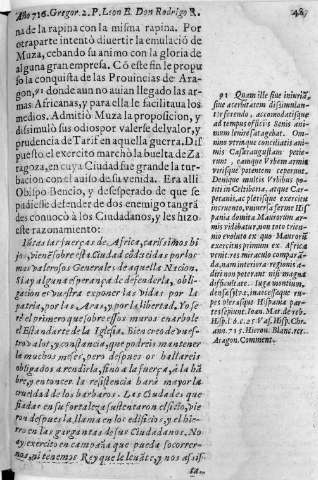 Año 716. Gregor. 2. P. Leon E. Don Rodrigo R. 48
na de la rapina con la misma rapina. Por
otra parte intentó divertir la emulació de
Muza, cebando su animo con la gloria de
alguna gran empresa. Có este fin le propu
so la conquista de las Prouincias de Ara-
gon, 91 donde aun no auian llegado las ar-
mas Africanas, y para ella le facilitaua los
medios. Admitiò Muza la proposicion, y
dissimulò sus odios por valerse del valor, y
prudencia de Tarif en aquella guerra. Dis
puesto el exercito marchò la buelta de Za
ragoza, en cuya Ciudad fue grande la tur-
bacion con el auiso de su venida. Era allí
Obispo Bencio, y desesperado de que se
pudiesse defender de dos enemigos tan gra
des conuocò à los Ciudadanos, y les hizo
este razonamiento:
Iuntas las fuerças de Africa, carissimos hi
jos, vienē sobre esta Ciudad cōducidas por los
mas valerosos Generales de aquella Nacion.
Si ay alguna esperança de defenderla, obli-
gacion es vuestra exponer las vidas por la
patria, por las Aras, y por la libertad. Yo se
rè el primero que sobre essos muros enarbole
el Estandarte de la Iglesia. Bien creo de vues-
tro valor, y constancia, que podreis mantener
la muchos meses, pero despues os hallareis
obligados a rendirla, sino a la fuerça, a la hā
bre, y entonces la resistencia harà mayor la
crueldad de los barbaros. Las Ciudades que
fiadas en su fortaleza sustentaron el sitio, vie
ron despues la llama en los edificios, y el hie-
rro en las gargantas de sus Ciudadanos. No
ay exercito en campaña que pueda socorrer-
nos, ni tenemos Rey que le leuāte, y nos assis-
ta,
91 Quam ille siue iniuriā,
siue acerbitatem dissimulan-
ter ferendo, accomodatisque
ad tempus officijs Senis ani-
mum lenire satagebat. Om-
nium
animis Cæsaraugustam petie-
runt, eamque Vrbem armis
verisque potentem ceterunt.
Denique multis Vrbibus po-
titi in Celtiberia, atque Car-
petania, ac plerisque exercitu
incruento, vniuersa ferme His
pania domita Maurorum ar-
mis videbatur, non toto trien-
nio euoluto ex quo Maurorū
exercitus primum ex Africa
venit: res miraculo comparā-
da, nam interiora regionis a-
diri non poterant nisi magna
difficultate. Iuga montium,
densa silua, inaccessæque ru-
pes plerasque Hispaniæ par-
tes sepiunt. Ioan. Mar. de reb.
Hisp. l. 6. c. 25. Vas. Hisp. Chr.
anno. 715. Hieron. Blanc. rer.
Aragon. Comment.